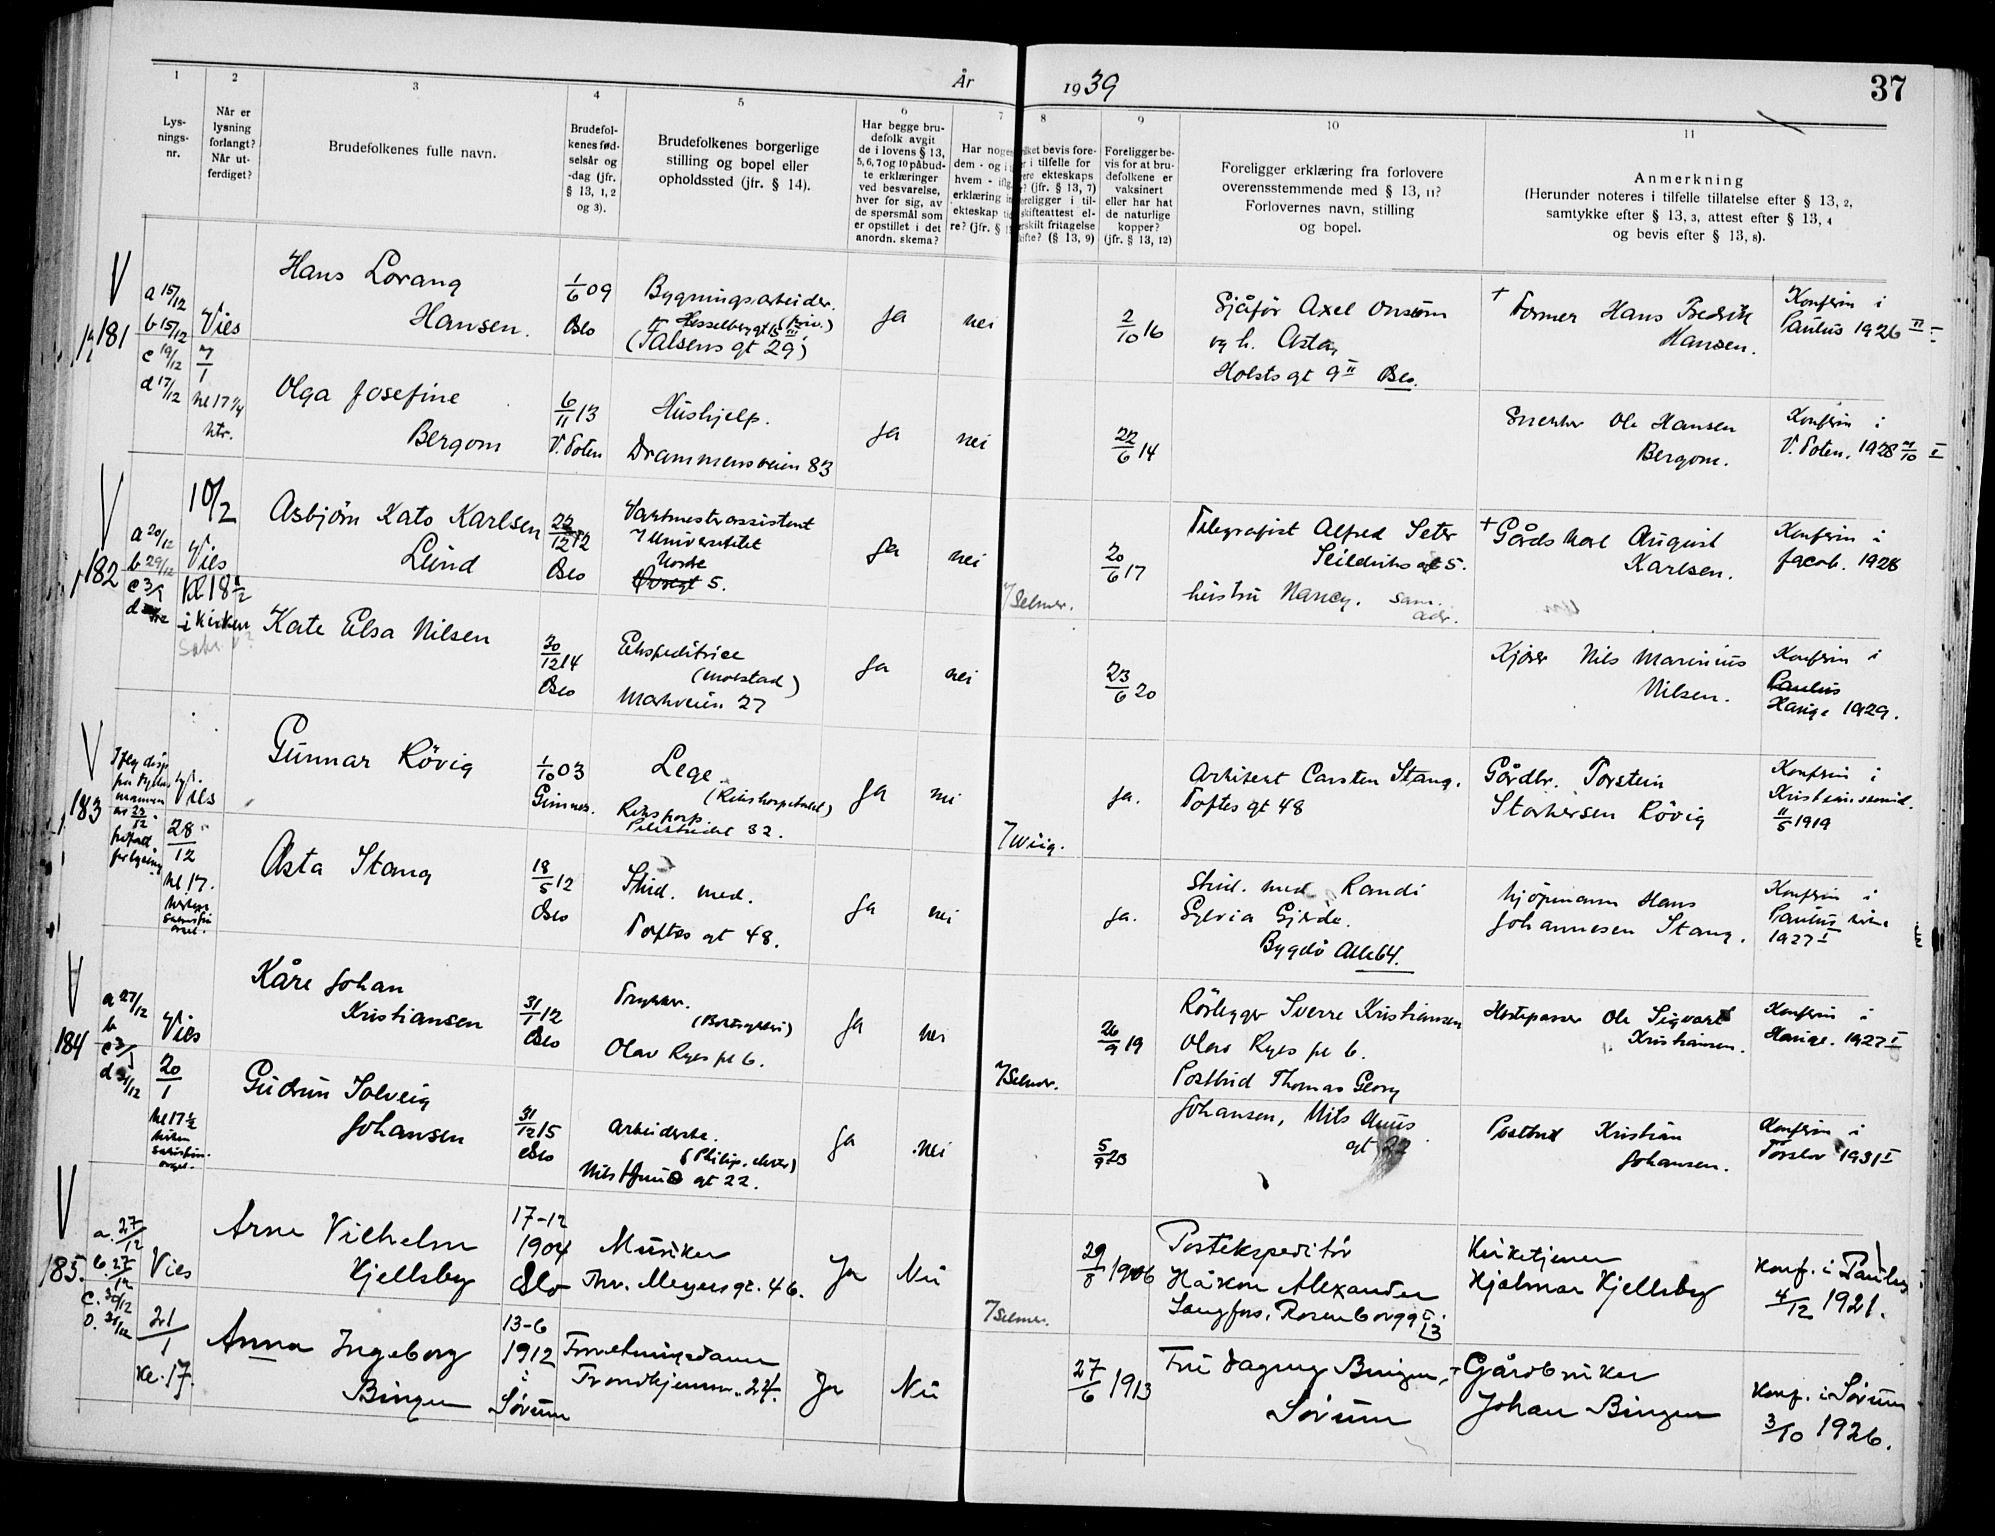 År 1939
37
1
2
3
4
5
6
7
8
9
10
11
Lys-
nings-
nr.
Når er
lysning
forlangt?
Når ut-
ferdiget?
Brudefolkenes fulle navn.
Brudefol-
kenes fød-
selsår og
-dag (jfr.
§ 13, 1, 2
og 3).
Brudefolkenes borgerlige
stilling og bopel eller
opholdssted (jfr. § 14).
Har begge bru-
defolk avgit
de i lovens § 13,
5, 6, 7 og 10 påbud-
te erklæringer
ved besvarelse,
hver for sig, av
de spørsmål som
er opstillet i det
anordn. skema?
Foreligger be-
vis for at bru-
defolkene er
vaksinert
eller har hat
de naturlige
kopper?
(jfr. § 13, 12)
Foreligger erklæring fra forlovere
overensstemmende med § 13, 11?
Forlovernes navn, stilling
og bopel.
Anmerkning
(Herunder noteres i tilfelle tillatelse efter § 13, 2,
samtykke efter § 13, 3, attest efter § 13, 4
og bevis efter § 13, 8).
181
a 15/12
b 15/12
c 19/12
d 17/12
Vies
7/1
Hans Lorang
Hansen.
1/6 09
Oslo
Bygningsarbeider.
(Falsens gt 29)
Ja
nei
2/10 16
Sjåfør Axel Onsum
og h. Asta,
Holsts gt 9 II Oslo.
+ Former Hans Fredrik
Hansen.
Konfirm i
Paulus 1926
Olga Josefine
Bergom
6/11 13
V. Toten
Hushjelp.
Drammensveien 83
Ja
nei
22/6 14
Snekker Ole Hansen
Bergom.
Konfirm i
V. Toten. 1928
182
a 20/12
b 29/12
c 3/1
10/2
Vies
Kl 18 1/2
i kirken
Asbjörn Kato Karlsen
Lund
12 12
Oslo
Vaktmesterassistent
Universitetet
5.
Ja
nei
7 Selmer.
20/6 17
Telegrafist Alfred Seter
5.
hustru Nancy. sam.
adr.
+ Gårdskarl August
Karlsen.
Konfirm i
Jacob. 1928
Kate Elsa Nilsen
30/12 14
Oslo
Ekspeditrice
(Molstad)
Markveien 27
Ja
nei
23/6 20
Kjörer Nils Marinius
Nilsen.
Konfirm i
Paulus
Hauge 1929.
183
Vies
28/12
kl 17.
Gunnar Rövig
1/10 03
Lege
(Rikshospitalet)
Rikshosp.
Pilestredet 32.
Ja
nei
7 Wiig.
ja.
Arkitekt Carsten Stang.
Toftes gt 48
Gårdbr. Torstein
Storkersen Rövig
Konfirm i
Kristiansund.
11/5 1919
Asta Stang
18/5 12
Oslo
Stud. med.
Toftes gt 48.
Ja
nei
ja.
Stud. med Randi
Sylvia Gjerde.
Bygdö Alle 64.
Kjöpmann Hans
Johannesen Stang.
Konfirm i
Paulus kirke
1927 I
184
a 27/12
b
c 3/1
d 31/12
Vies
20/1
kl 17 1/2
Kåre Johan
Kristiansen
31/1 12
Oslo
Trykker.
Olav Ryes pl 6.
Ja
nei
7 Selmer.
26/9 19
Rörlegger Sverre Kristiansen
Olav Ryes pl 6.
Postbud Thomas Georg
Johansen, Nils Huus
gt 22
Hestepasser Ole Sigvart
Kristiansen.
Konfirm i
Hauge. 1927 I
Gudrun Solveig
Johansen
31/12 15
Oslo
Arbeiderske.
Nils Huus gt 22.
Ja
nei
5/9 23
Postbud Kristian
Johansen.
Konfirm i
Torshov 1931 I
185.
a. 27/12
b. 27/12
c. 30/12
D. 31/12
Vies
21/1
Kl. 17.
Arne Vilhelm
Kjellsby
17-12
1904
Oslo
Musiker
Thv. Meyersgt. 46.
Ja
Nei
7 Selmer.
29/8 1906
Postekspeditör
Håkon Alexander
Langfos, Rosenborggt.
13
Kirketjener
Hjalmar Kjellsby
Konf. i Paulus
4/12 1921.
Anna Ingeborg
Bingen
13-6
1912
i
Sörum
Forretningsdame
Trondhjemsv. 24.
Ja
Nei
27/6 1913
Fru Dagny Bingen,
Sörum
+ Gårdbruker
Johan Bingen
Konf. i Sörum
3/10 1926.